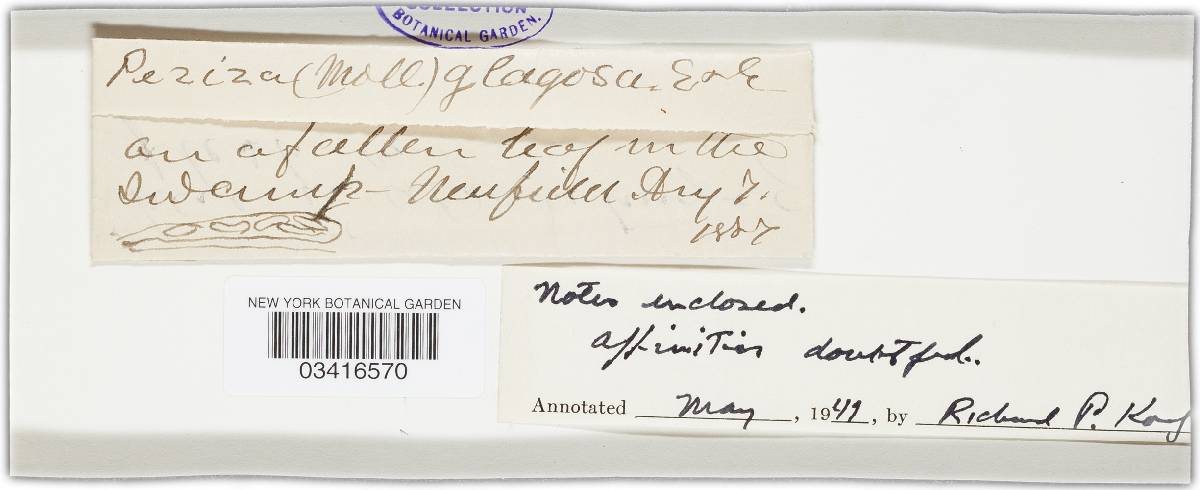 COLLECTION
BOTANICAL GARDEN.
Peziza (Moll.) glagosa. E & E
on a fallen leaf in the
swamp - Newfield Aug 7.
1887
NEW YORK BOTANICAL GARDEN
03416570
Notes enclosed.
affinities doubtful.
Annotated May, 1949, by Richard P. Korf